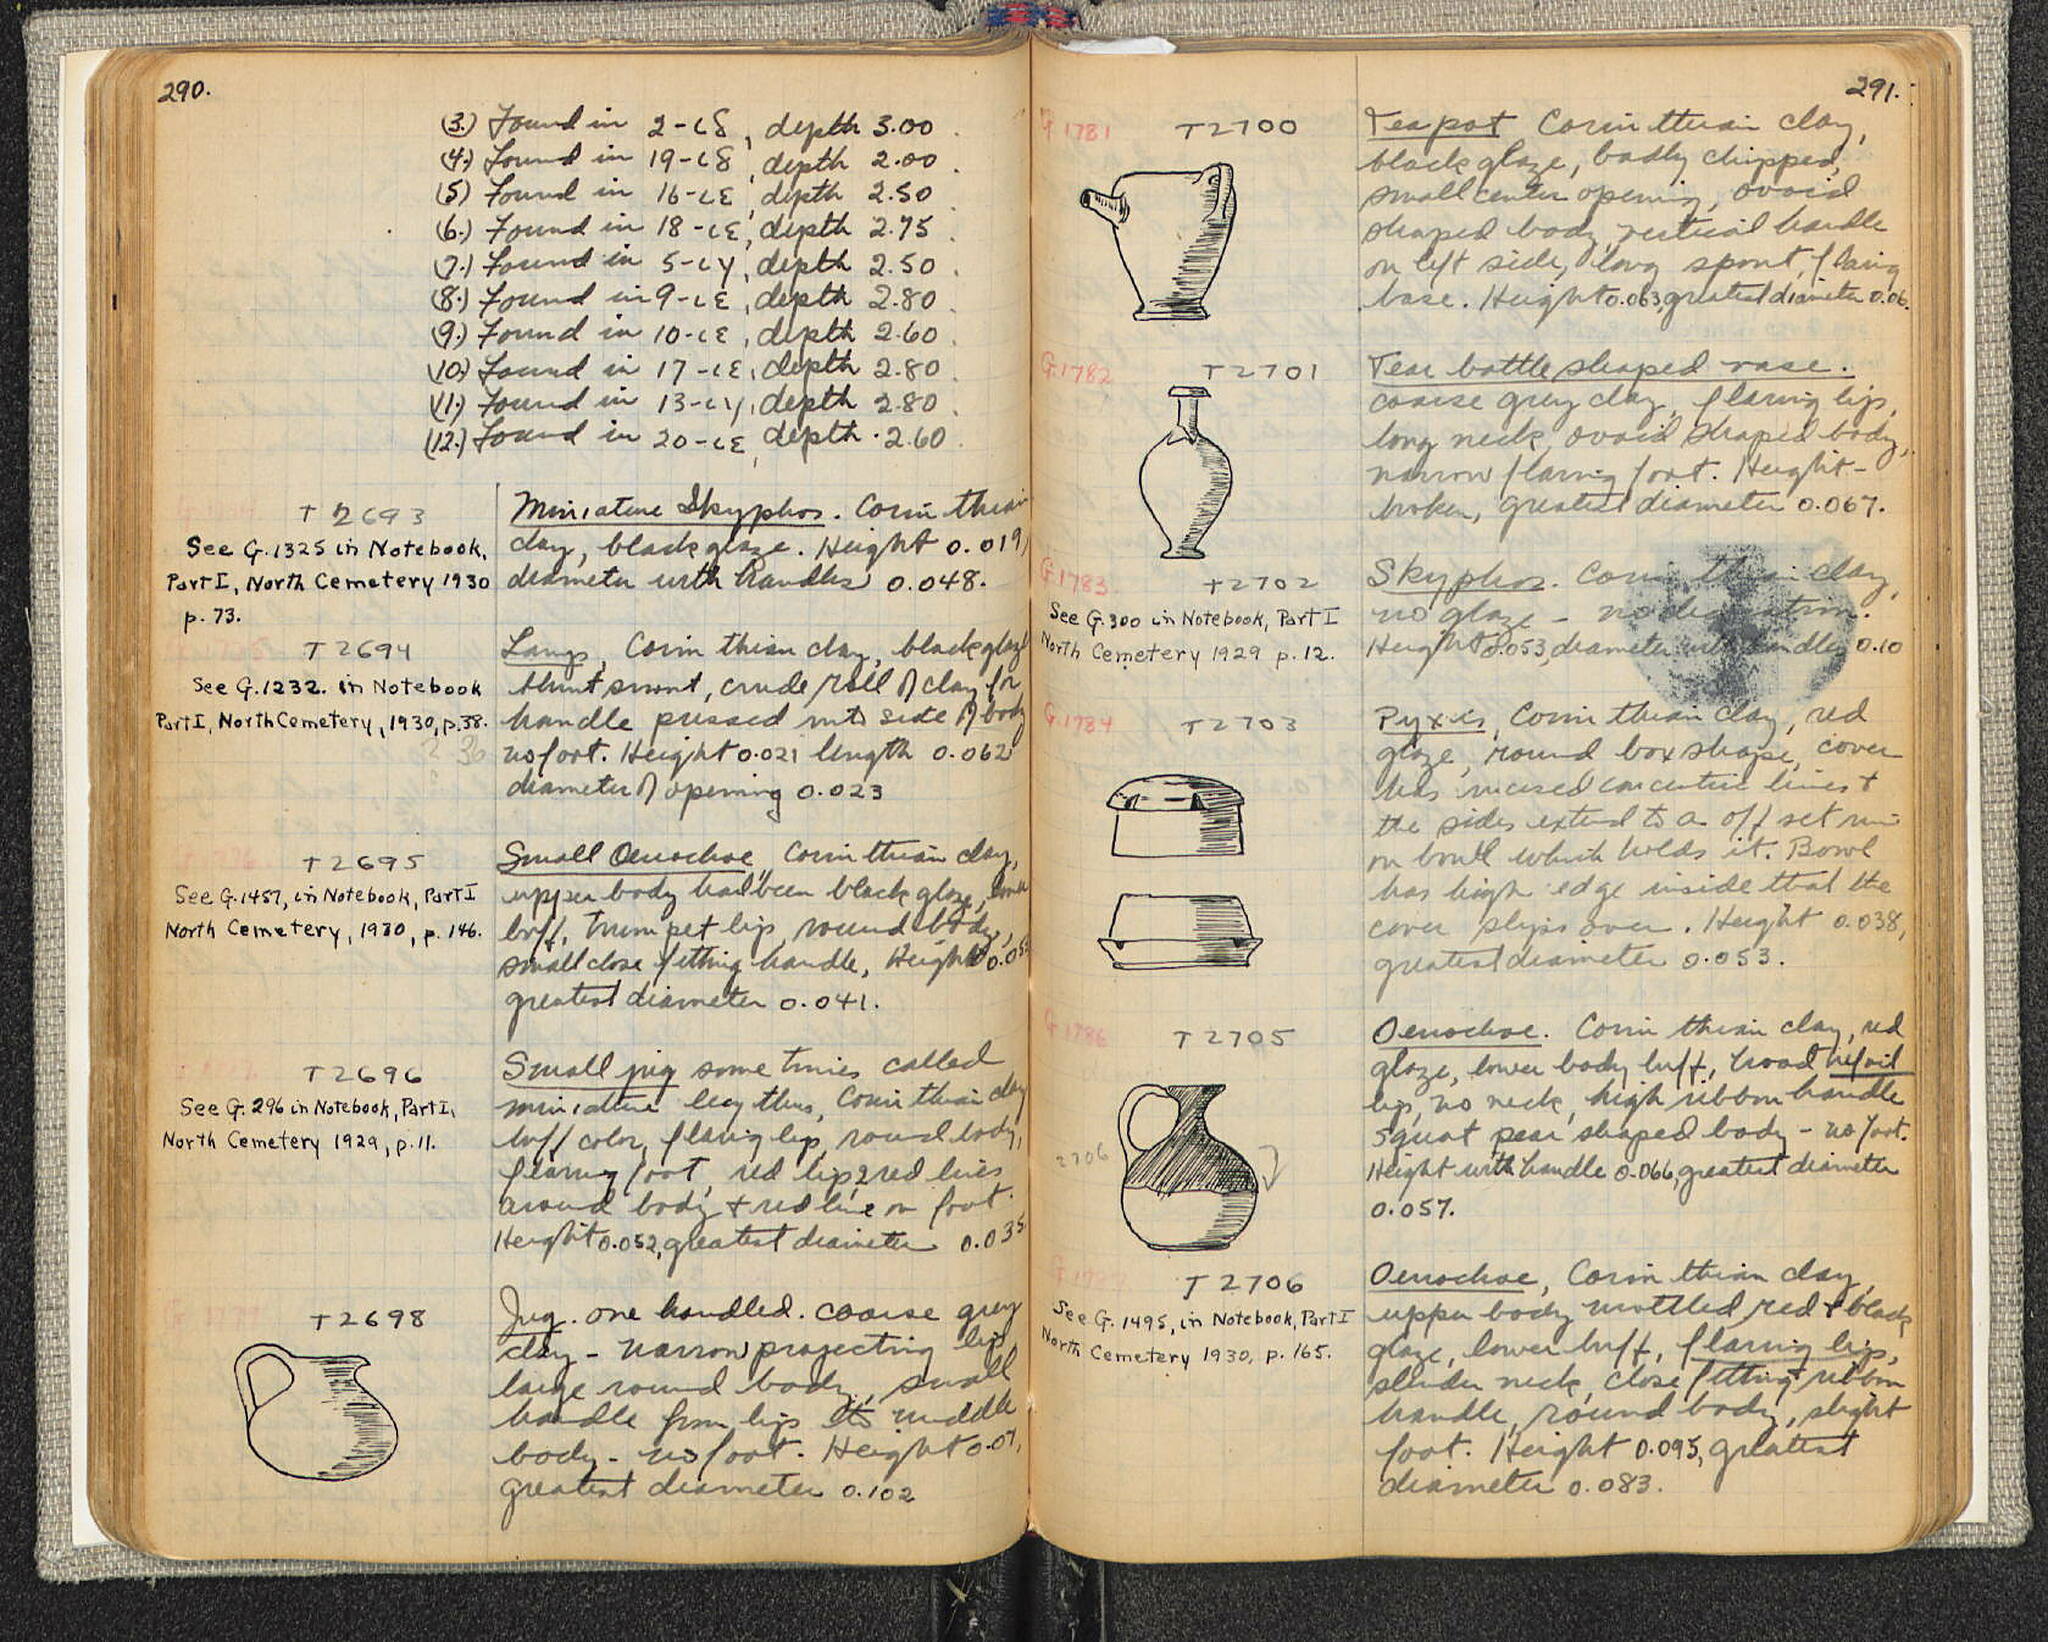 290.
(3.) Found in 2-ιδ, depth 3.00.
(4.) Found in 19-ιδ, depth 2.00.
(5) Found in 16-ιε, depth 2.50.
(6.) Found in 18-ιε, depth 2.75.
(7.) Found in 5-ιγ, depth 2.50.
(8.) Found in 9-ιε, depth 2.80.
(9.) Found in 10-ιε, depth 2.60.
(10.) Found in 17-ιε, depth 2.80.
(11.) Found in 13-ιγ, depth 2.80.
(12.) Found in 20-ιε, depth 2.60.
T 2693
See G.1325 in Notebook,
Part I, North Cemetery 1930
p. 73.
Miniature Skyphos. Corinthian
clay, black glaze. Height 0.019,
diameter with handles 0.048.
T 2694
See G.1232. in Notebook
Part I, North Cemetery, 1930, p.38.
Lamp, Corinthian clay, black glaze
blunt snout, crude roll of clay for
handle pressed into side of body
no foot. Height 0.021 length 0.062
diameter of opening 0.023
T 2695
See G.1457, in Notebook, Part I
North Cemetery, 1930, p. 146.
Small Oenochoe, Corinthian clay,
upper body had been black glaze, lower
buff, trumpet lip, round body,
small close fitting handle, Height
greatest diameter 0.041.
T 2696
See G. 296 in Notebook, Part I,
North Cemetery 1929, p.11.
Small jug some times called
miniature lecythus, Corinthian clay
buff color, flaring lip, round body,
flaring foot, red lip, 2 red lines
around body + red line on foot.
Height 0.052, greatest diameter 0.035
T 2698
Jug. one handled. coarse grey
clay - narrow projecting lip
large round body, small
handle from lip to middle
body - no foot. Height 0.07,
greatest diameter 0.102
291.
G 1781
T 2700
Teapot Corinthian clay,
black glaze, badly chipped,
small center opening, ovoid
shaped body, vertical handle
on left side, long spout, flaring
base. Height 0.063, greatest diameter 0.06.
G.1782
T 2701
Tear bottle shaped vase.
coarse grey clay, flaring lip,
long neck, ovoid shaped body,
narrow flaring foot. Height -
broken, greatest diameter 0.067.
G.1783
T 2702
See G.300 in Notebook, Part I
North Cemetery 1929 p.12.
Skyphos. Corinthian clay,
no glaze - no decoration.
Height 0.053, diameter with handles 0.10
G.1784
T 2703
Pyxis, Corinthian clay, red
glaze, round box shape, cover
has incised concentric lines +
the sides extend to a off set rim
on bowl which holds it. Bowl
has high edge inside that the
cover slips over. Height 0.038,
greatest diameter 0.053.
G 1786
T 2705
2706
Oenochoe. Corinthian clay, red
glaze, lower body buff, broad trefoil
lip, no neck, high ribbon handle
squat pear shaped body - no foot.
Height with handle 0.066, greatest diameter
0.057.
T 2706
See G. 1495, in Notebook, Part I
North Cemetery 1930, p. 165.
Oenochoe, Corinthian clay,
upper body mottled red + black
glaze, lower buff, flaring lip,
slender neck, close fitting ribbon
handle, round body, slight
foot. Height 0.095, greatest
diameter 0.083.